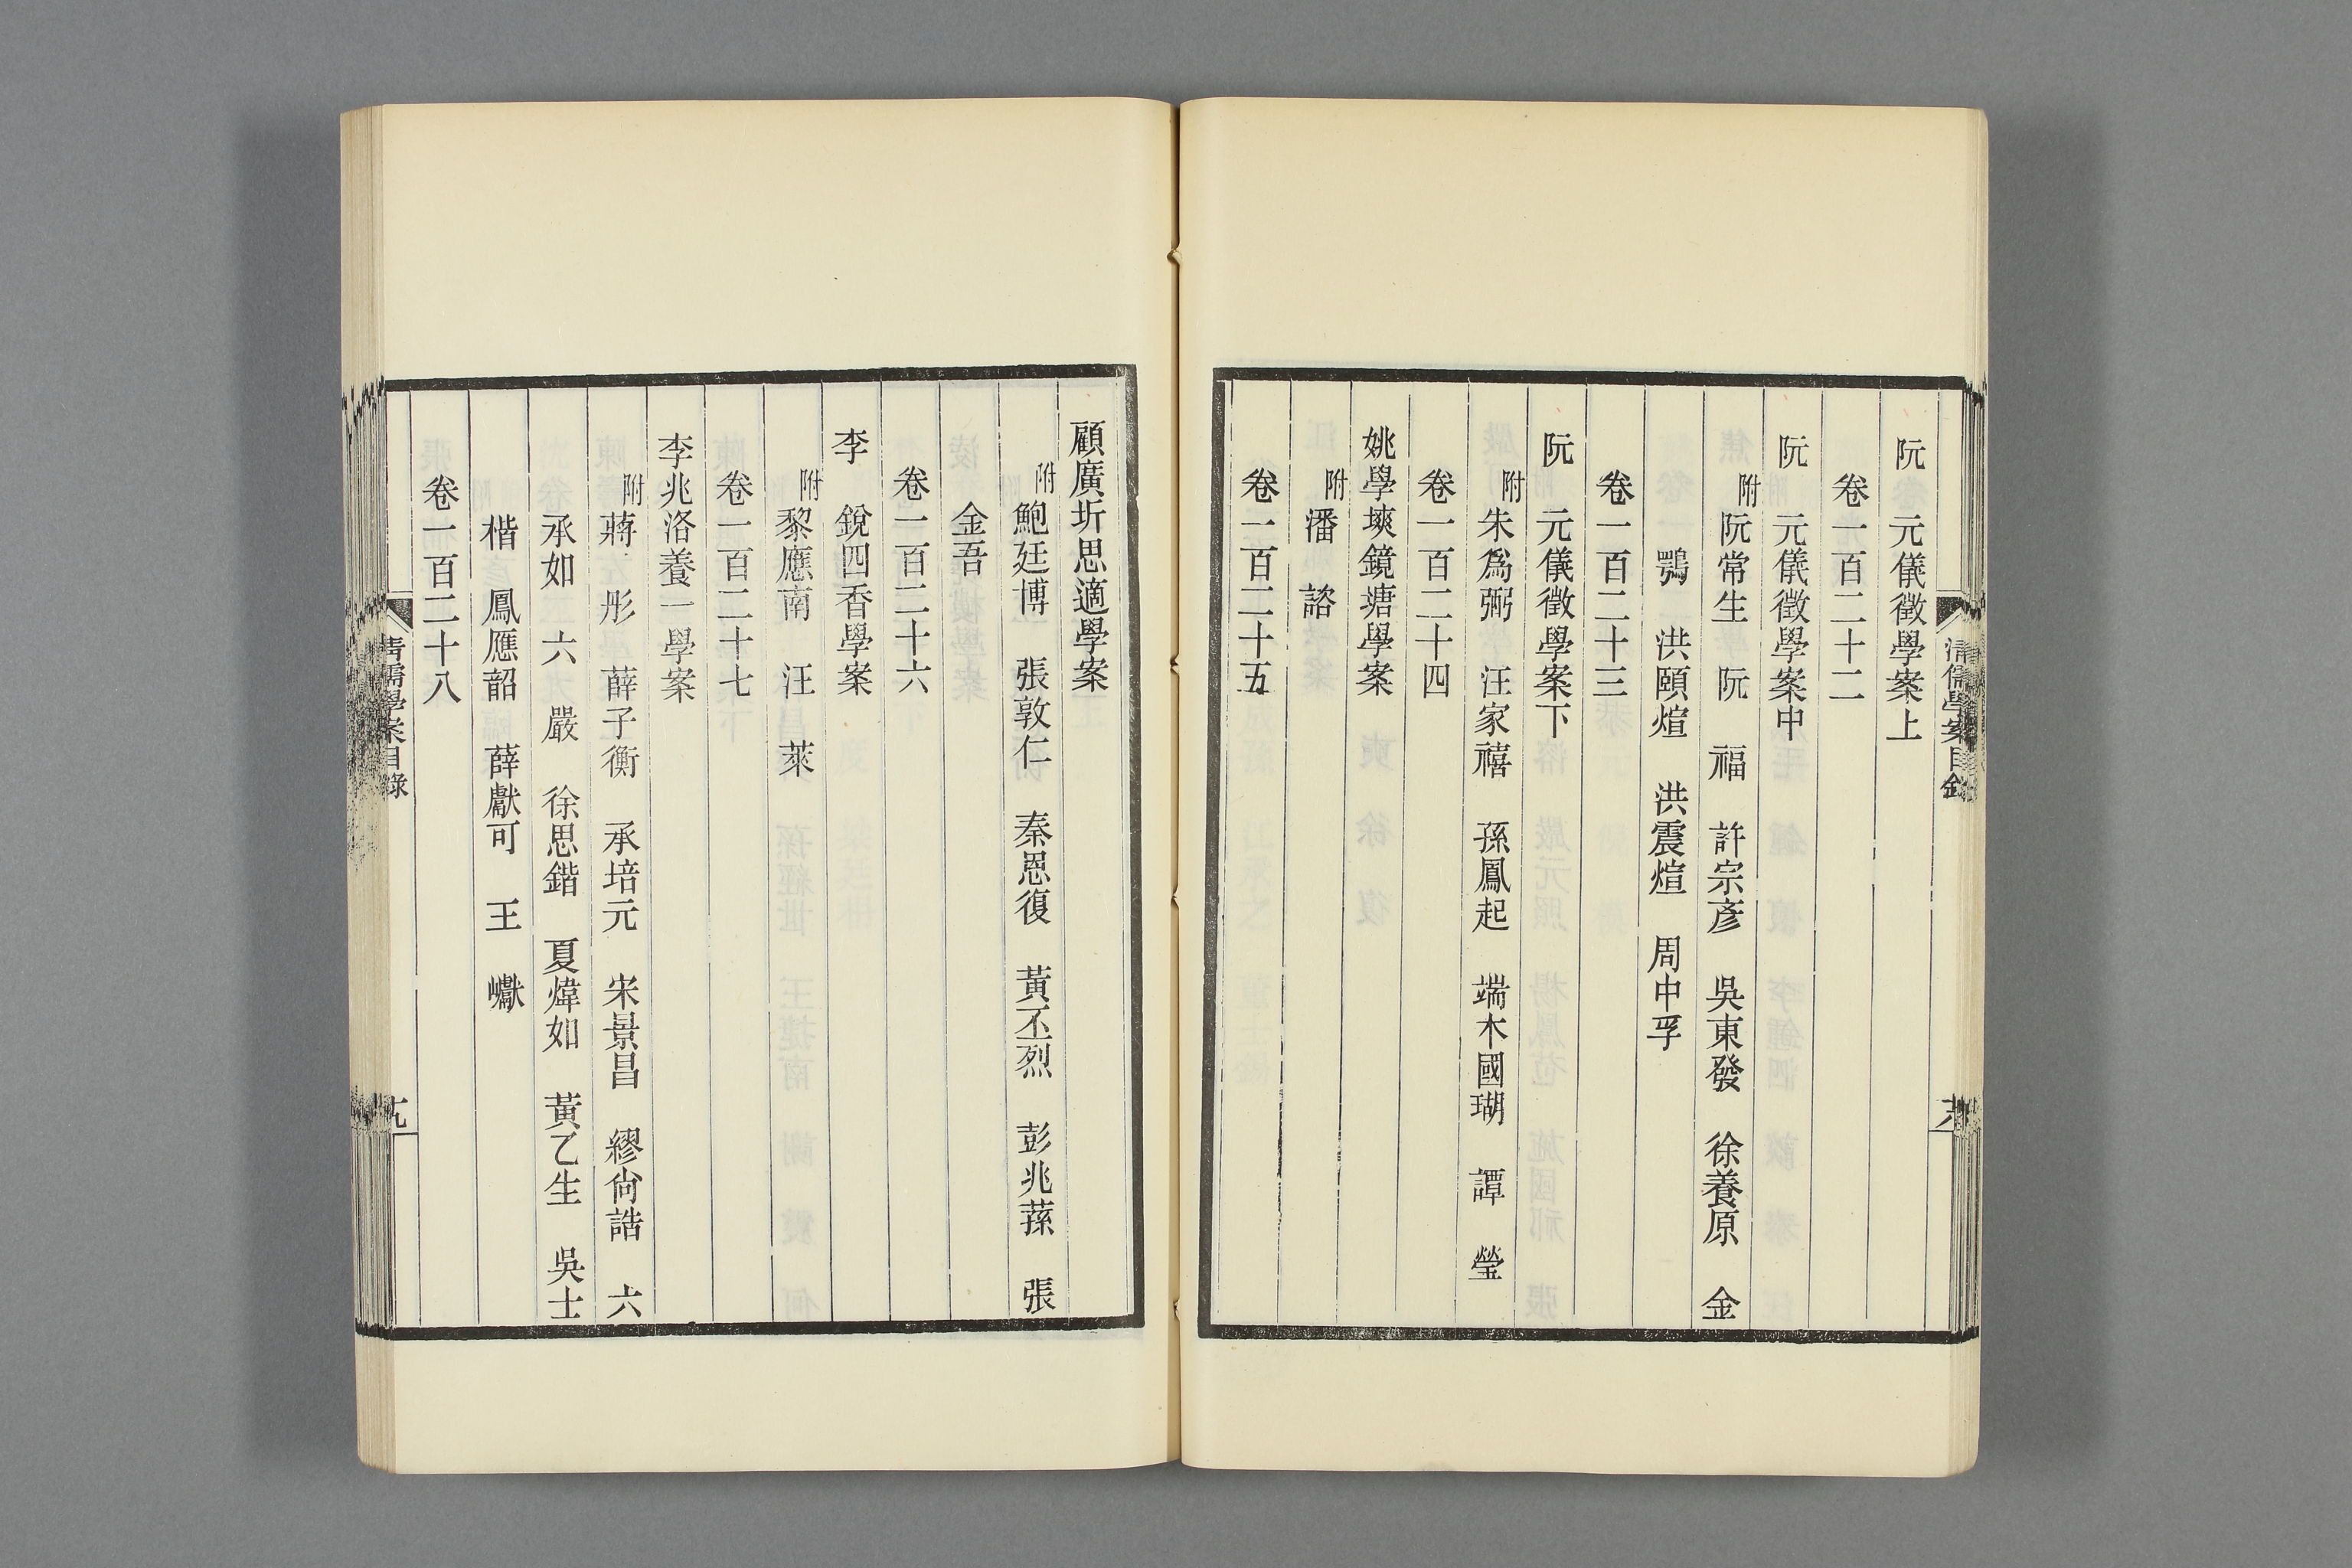 阮 元儀徵學案上
卷一百二十二
阮 元儀徵學案中
附阮常生 阮 福 許宗彥 吳東發 徐養原 金
鶚 洪頤煊 洪震煊 周中孚
卷一百二十三
阮 元儀徵學案下
附朱爲弼 汪家禧 孫鳳起 端木國瑚 譚 瑩
卷一百二十四
姚學塽鏡塘學案
附潘 諮
卷一百二十五
清儒學案目錄
顧廣圻思適學案
附鮑廷博 張敦仁 秦恩復 黃丕烈 彭兆蓀 張
金吾
卷一百二十六
李 銳四香學案
附黎應南 汪 萊
卷一百二十七
李兆洛養一學案
附蔣 彤 薛子衡 承培元 宋景昌 繆尙誥 六
承如 六 嚴 徐思鍇 夏煒如 黃乙生 吳士
楷 鳳應韶 薛獻可 王 巘
卷一百二十八
清儒學案目錄
十九